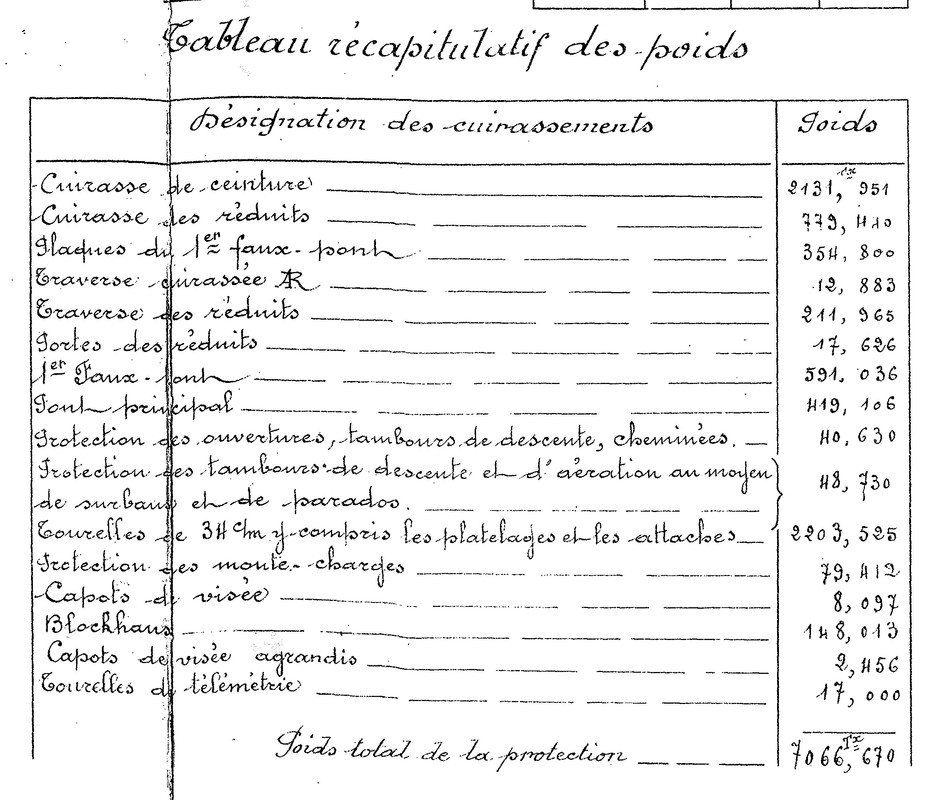 Tableau récapitulatif des poids
Désignation des cuirassements Poids
Cuirasse de ceinture 2131,Tx 951
Cuirasse des réduits 779, 440
Plaques du 1er faux-pont 354, 800
Traverse cuirassée AR 12, 883
Traverse des réduits 211, 965
Portes des réduits 17, 626
1er Faux-pont 591. 036
Pont principal 419, 106
Protection des ouvertures, tambours de descente, cheminées. 40, 630
Protection des tambours de descente et d'aération au moyen
de surbaus et de parados. 48, 730
Tourelles de 34 c/m y compris les platelages et les attaches 2203, 525
Protection des monte-charges 79, 412
Capots de visée 8, 097
Blockhaus 148, 013
Capots de visée agrandis 2, 456
Tourelles de télémétrie 17, 000
Poids total de la protection 7066,Tx 670